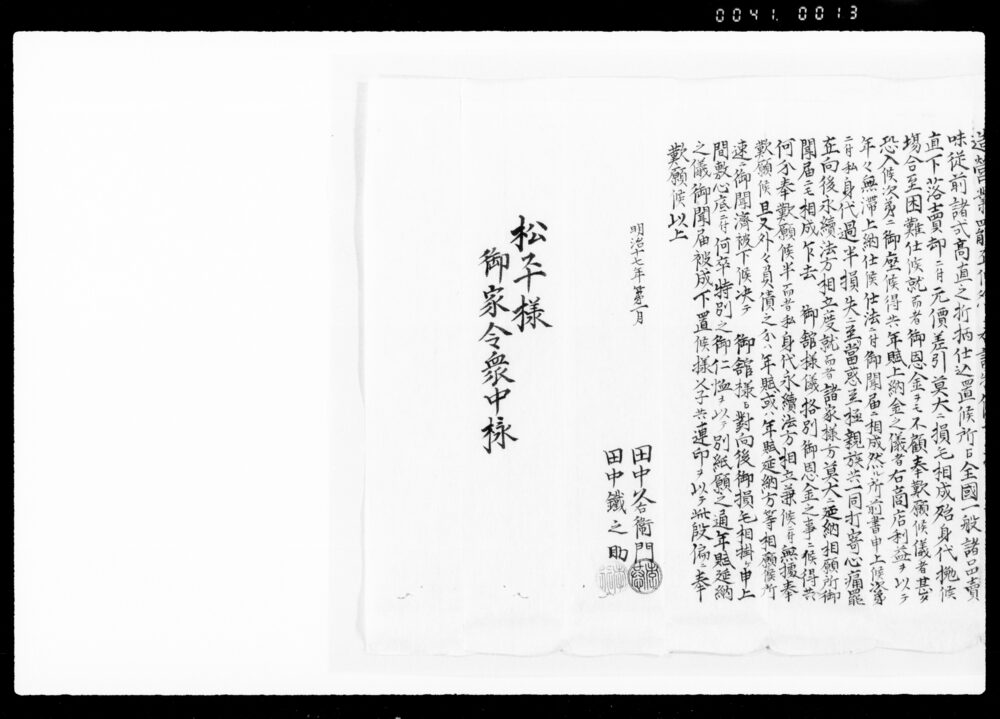 0041. 0013
味従前諸式高直之折柄仕込置候所日全國一般諸品賣
直下落賣却ニ付元價差引莫大ニ損毛相成殆身代挽候
場合至困難仕候就而者御恩金ヲモ不顧奉歎願候儀者甚タ
恐入候次第ニ御座候得共年賦上納金之儀者右商店利益ヲ以テ
年々無滞上納仕候仕法ニ付御聞届ニ相成然ル所前書申上候次第
ニ付私身代過半損失ニ至當惑至極親族共一同打寄心痛罷
在向後永續法方相立度就而者諸家様方莫大ニ延納相願所御
聞届ニモ相成乍去 御舘様儀格別御恩金之事ニ候得共
何分奉歎願候半而者私身代永續法方相立兼候ニ付無據奉
歎願候且又外々負債之分ハ年賦或ハ年賦延納方等相願候所
速ニ御聞濟被下候決テ 御舘様ニ對向後御損毛相掛ケ申上
間敷心底ニ付何卒特別之御仁恤ヲ以テ別紙願之通年賦延納
之儀御聞届被成下置候様父子共連印ヲ以テ此段偏ニ奉
歎願候以上
明治十七年第一月
田中谷衛門
田中鐵之助
松平様
御家令衆中様